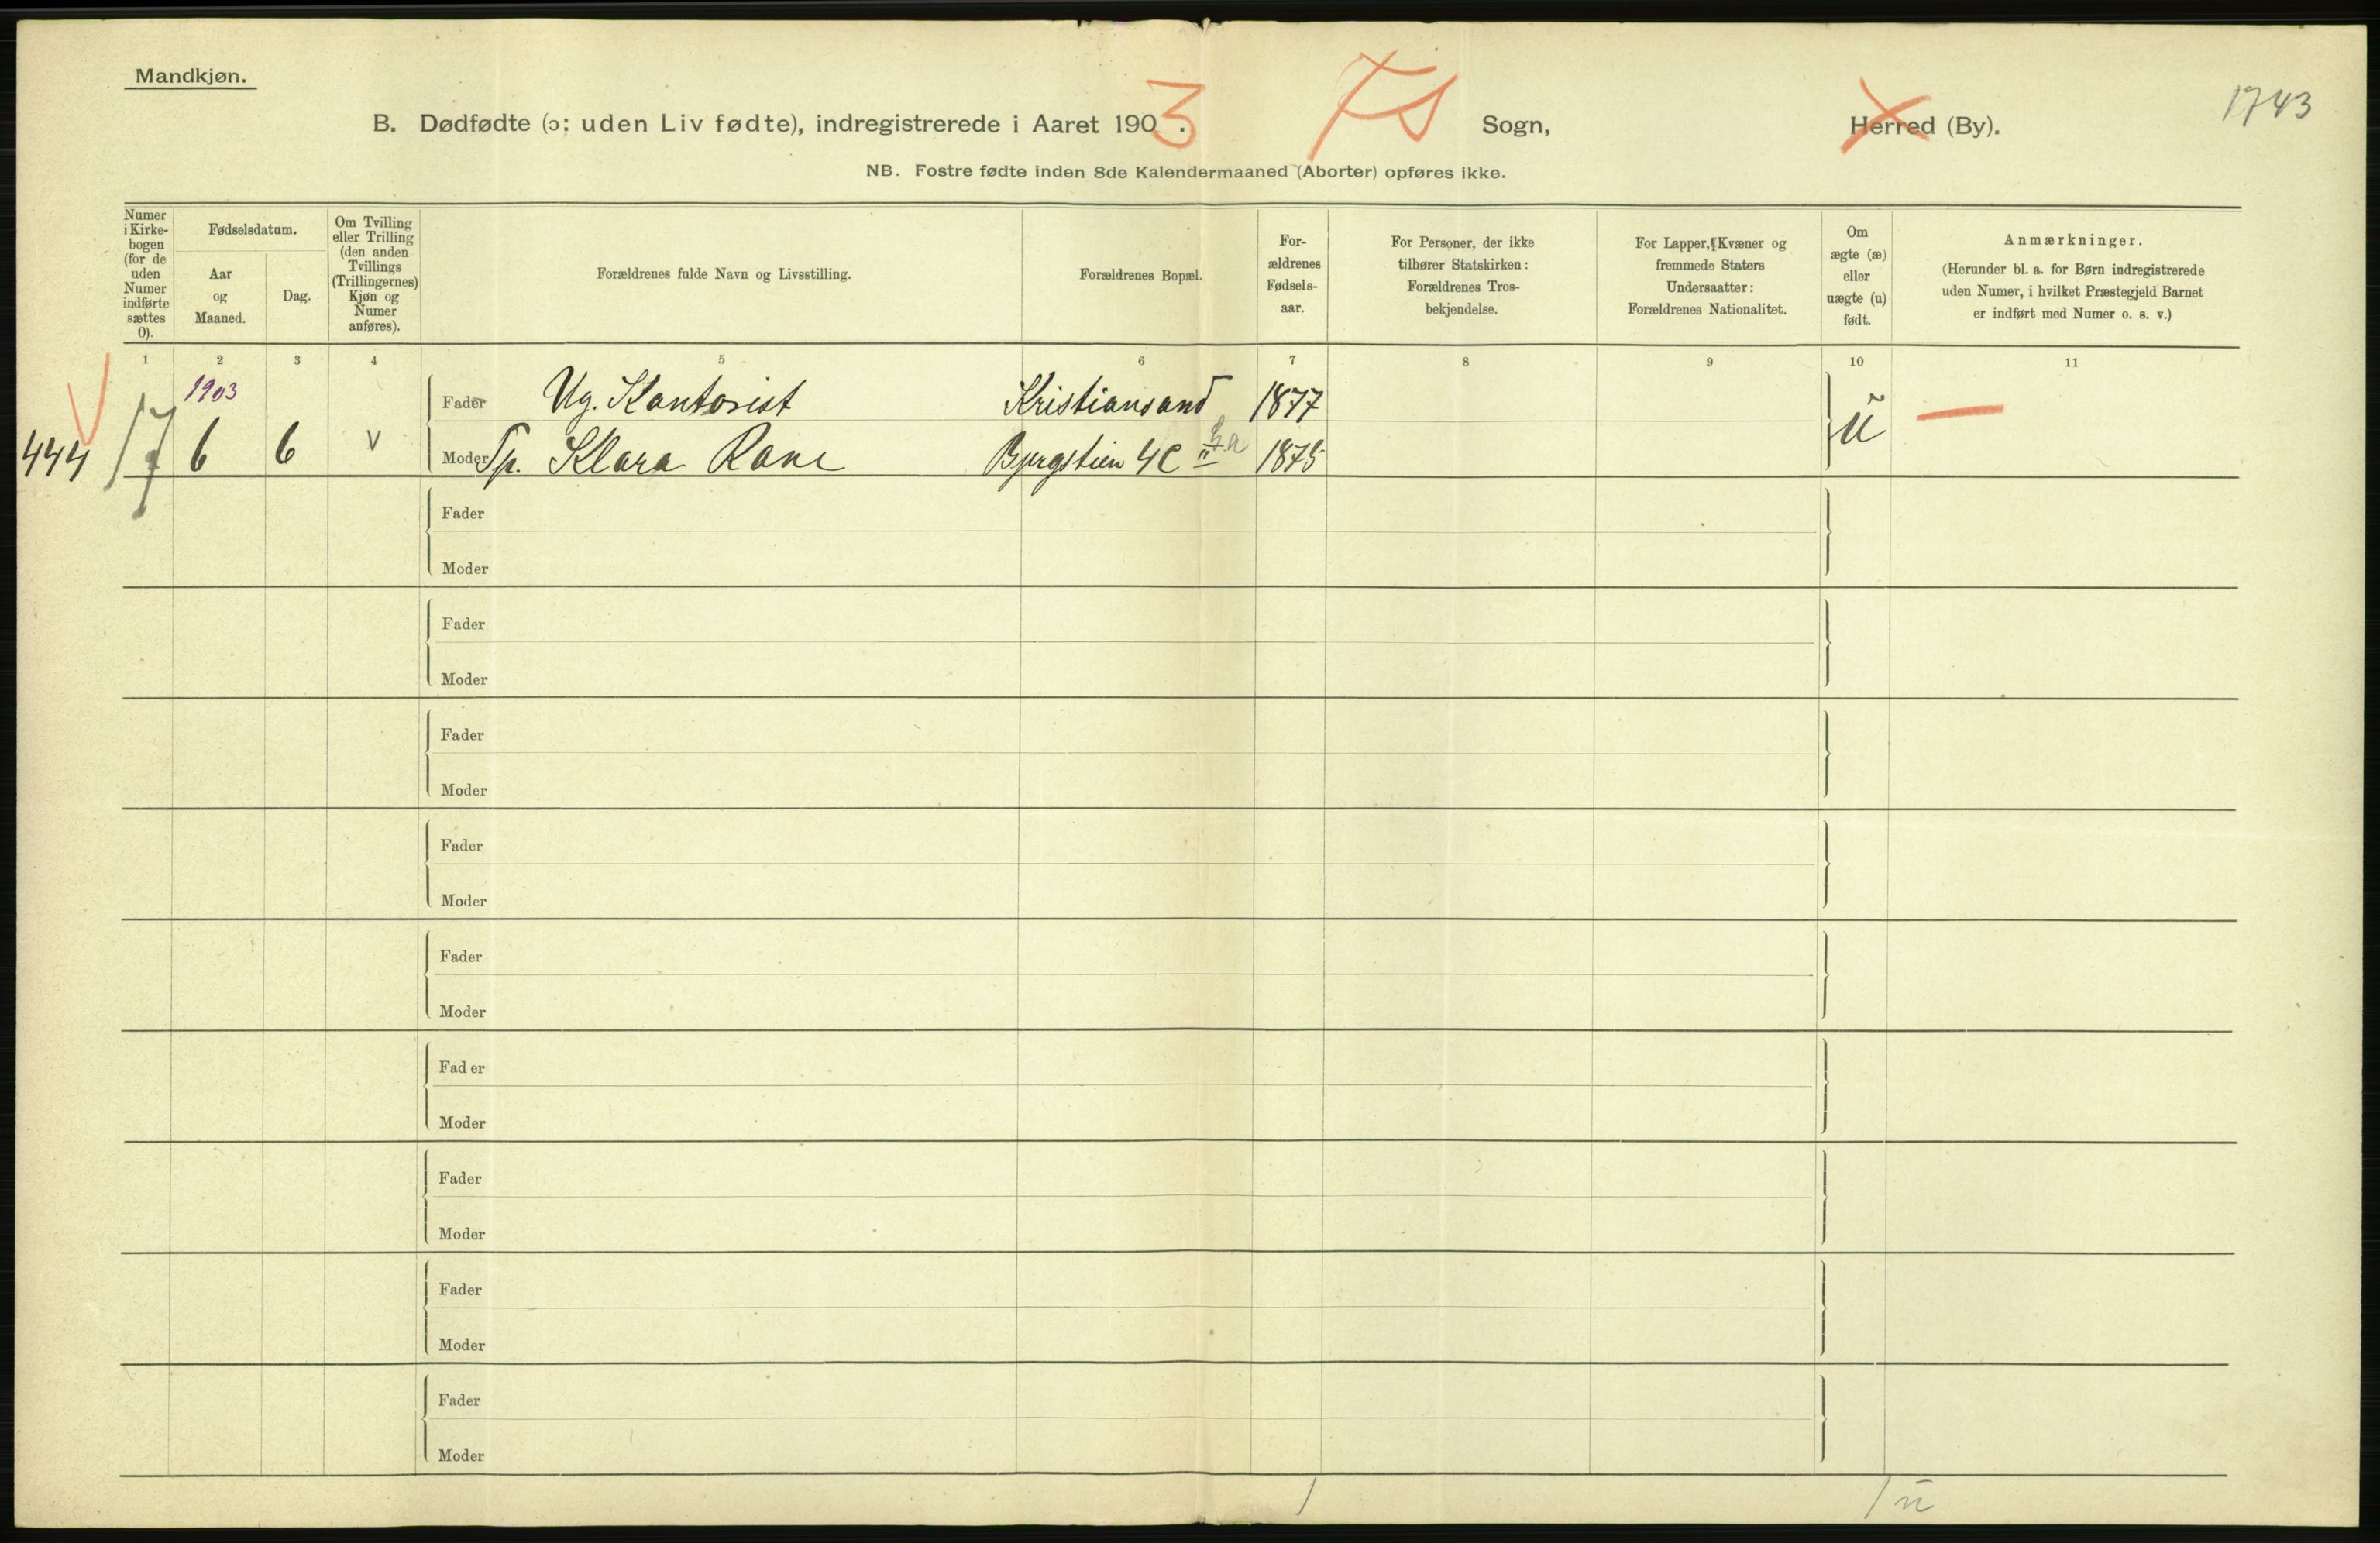 Mandkjøn.
1743
B. Dødfødte (ɔ: uden Liv fødte), indregistrerede i Aaret 1903. Sogn, Herred (By).
NB. Fostre fødte inden 8de Kalendermaaned (Aborter) opføres ikke.
Numer i Kirke-
bogen
(for de
uden
Numer
indførte
sættes
0).
Fødselsdatum.
Aar
og
Maaned.
Dag.
Om Tvilling
eller Trilling
(den anden
Tvillings
(Trillingernes)
Kjøn og
Numer
anføres).
Forældrenes fulde Navn og Livsstilling.
Forældrenes Bopæl.
For-
ældrenes
Fødsels-
aar.
For Personer, der ikke
tilhører Statskirken:
Forældrenes Tros-
bekjendelse.
For Lapper, Kvæner og
fremmede Staters
Undersaatter:
Forældrenes Nationalitet.
Om
ægte (æ)
eller
uægte (u)
født.
Anmærkninger.
(Herunder bl. a. for Børn indregistrerede
uden Numer, i hvilket Præstegjeld Barnet
er indført med Numer o. s. v.)
1 2 3 4 5 6 7 8 9 10 11
1903
Fader Ug. Kontorist Kristiansand 1877
444 17 6 6 v Moder Tp. Klara Rane Bjergstien 4c II 1875 u
Fader
Moder
Fader
Moder
Fader
Moder
Fader
Moder
Fader
Moder
Fader
Moder
Fader
Moder
Fader
Moder
Fader
Moder
1 1 u